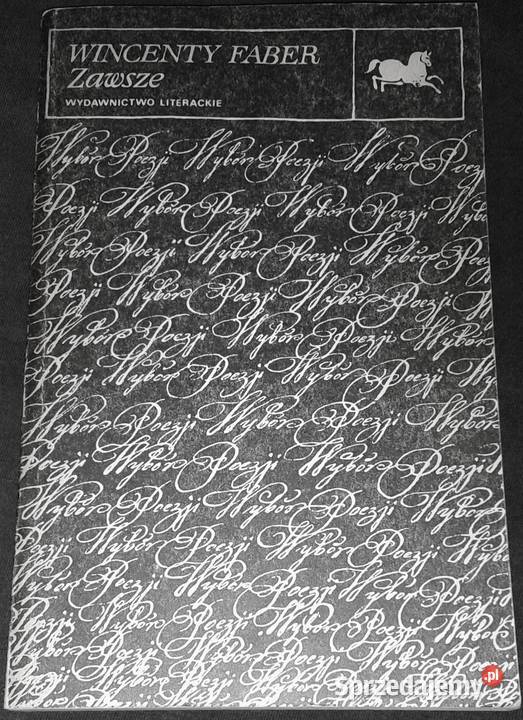 WINCENTY FABER
Zawsze
WYDAWNICTWO LITERACKIE
Wybór Poezji Wybór Poezji Wybór Poezji
Poezji Wybór Poezji Wybór Poezji Wybó
Wybór Poezji Wybór Poezji Wybór Poezji
Poezji Wybór Poezji Wybór Poezji W
Wybór Poezji Wybór Poezji Wybór
Poezji Wybór Poezji Wybór Poezji Wy
Wybór Poezji Wybór Poezji Wybór
Poezji Wybór Poezji Wybór Poezji
Wybór Poezji Wybór Poezji Wybór
Poezji Wybór Poezji Wybór Poezji Wybó
Wybór Poezji Wybór Poezji Wybór Poezji
Poezji Wybór Poezji Wybór Poezji Wybór
Wybór Poezji Wybór Poezji Wybór Poezji
Sprzedajemy.pl